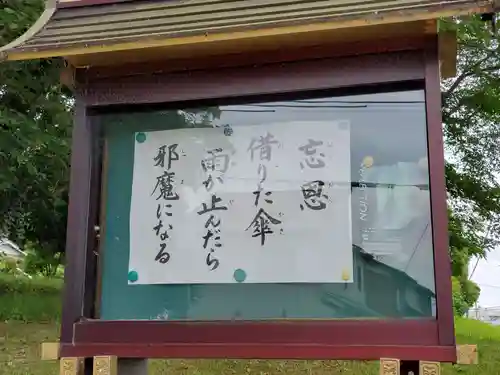 忘恩
借りた傘
雨が止んだら
邪魔になる